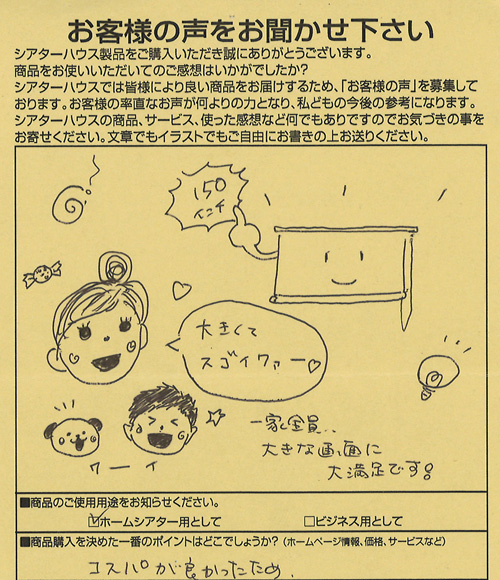 お客様の声をお聞かせ下さい
シアターハウス製品をご購入いただき誠にありがとうございます。
商品をお使いいただいてのご感想はいかがでしたか?
シアターハウスでは皆様により良い商品をお届けするため、「お客様の声」を募集して
おります。お客様の率直なお声が何よりの力となり、私どもの今後の参考になります。
シアターハウスの商品、サービス、使った感想など何でもありですのでお気づきの事を
お寄せください。文章でもイラストでもご自由にお書きの上お送りください。
150
インチ
大きくて
スゴイワァー♡
ワーイ
一家全員、
大きな画面に
大満足です!
■商品のご使用用途をお知らせください。
☑ホームシアター用として □ビジネス用として
■商品購入を決めた一番のポイントはどこでしょうか?(ホームページ情報、価格、サービスなど)
コスパが良かったため、